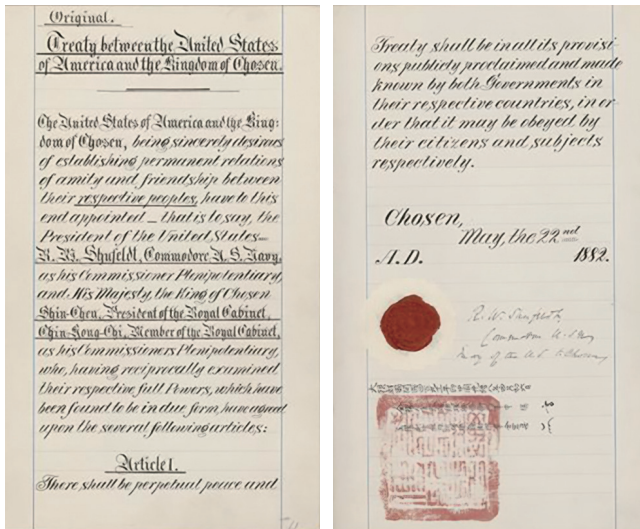 Original.
Treaty between the United States
of America and the Kingdom of Chosen.
The United States of America and the King-
dom of Chosen, being sincerely desirous
of establishing permanent relations
of amity and friendship between
their respective peoples, have to this
end appointed – that is to say, the
President of the United States –
R. W. Shufeldt, Commodore U.S. Navy,
as his Commissioner Plenipotentiary,
and His Majesty, the King of Chosen
Shin-Chen, President of the Royal Cabinet,
Chin-Hong-Chi, Member of the Royal Cabinet,
as his Commissioners Plenipotentiary,
who, having reciprocally examined
their respective full Powers, which have
been found to be in due form, have agreed
upon the several following articles:
Article I.
There shall be perpetual peace and
Treaty shall be in all its provisi-
ons publicly proclaimed and made
known by both Governments in
their respective countries, in or-
der that it may be obeyed by
their citizens and subjects
respectively.
Chosen,
May, the 22nd
A.D. 1882.
R. W. Shufeldt
Commodore U.S.
of the U.S. to Chosen